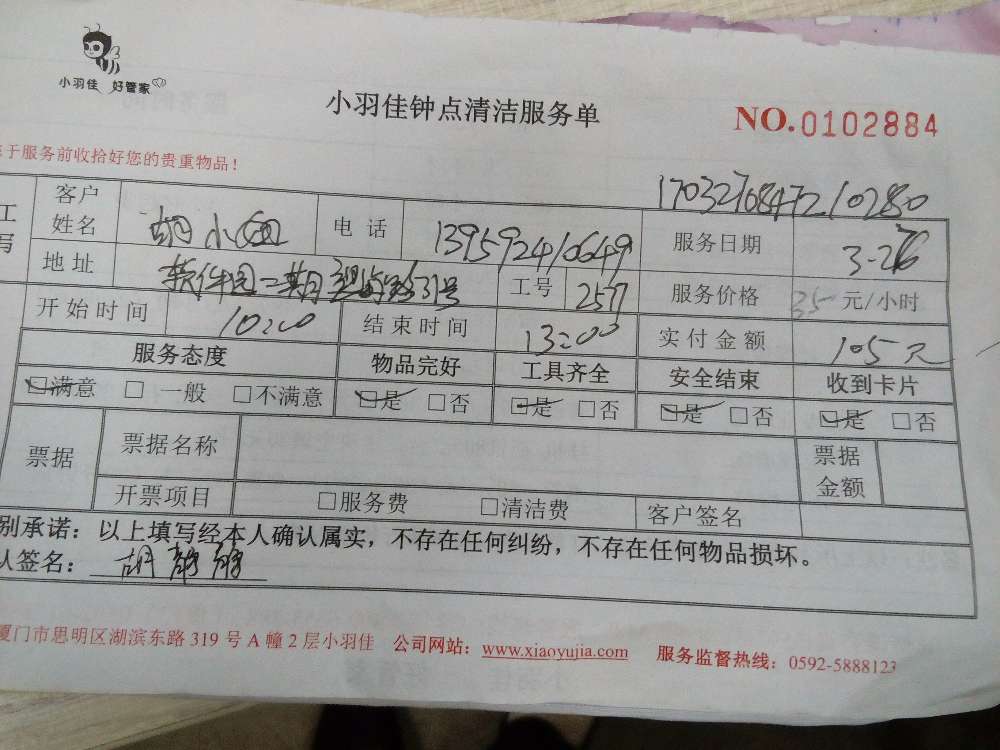 小羽佳 好管家
小羽佳钟点清洁服务单
NO.0102884
于服务前收拾好您的贵重物品！
1703276847210280
工
写
客户
姓名
胡小姐
电话
139592410649
服务日期
3-26
地址
软件园二期望海路31号
工号
2577
服务价格
35 元/小时
开始时间
10:00
结束时间
13:00
实付金额
105元
服务态度
物品完好
工具齐全
安全结束
收到卡片
□满意 □ 一般 □不满意
□是 □否
□是 □否
□是 □否
□是 □否
票据
票据名称
票据
金额
开票项目
□服务费 □清洁费
客户签名
别承诺：以上填写经本人确认属实，不存在任何纠纷，不存在任何物品损坏。
人签名：胡
厦门市思明区湖滨东路 319 号 A 幢 2 层小羽佳 公司网站：www.xiaoyujia.com 服务监督热线：0592-5888123